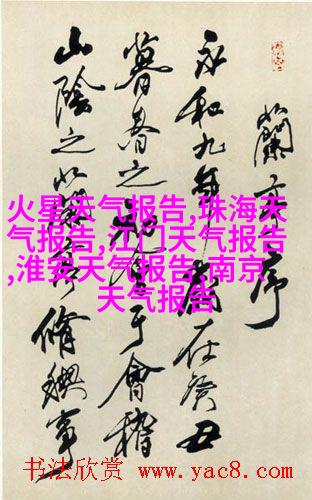 蘭亭序
永和九年歲在癸丑
暮春之初會于會稽
山陰之蘭亭脩禊事
火星天气报告,珠海天
气报告,江门天气报告
,淮安天气报告,南京
天气报告
书法欣赏 www.yac8.com